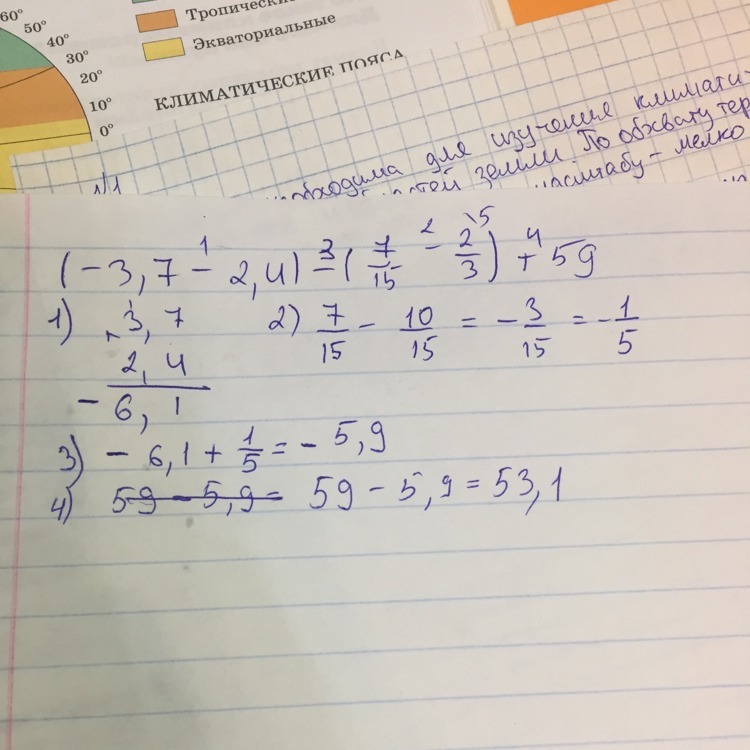 60°
50°
40°
30°
20°
10°
0°
Тропически
Экваториальные
КЛИМАТИЧЕСКИЕ ПОЯСА
№1
обходима для изучение климати-
тей земли. По обхвату тер
масштабу - мелко
(-3,7 - 2,4) - (7/15 - 2/3) + 59
1 3 2 \5 4
1) 3,7
+ 2,4
- 6,1
2) 7/15 - 10/15 = - 3/15 = - 1/5
3) - 6,1 + 1/5 = - 5,9
4) 59 - 5,9 = 59 - 5,9 = 53,1